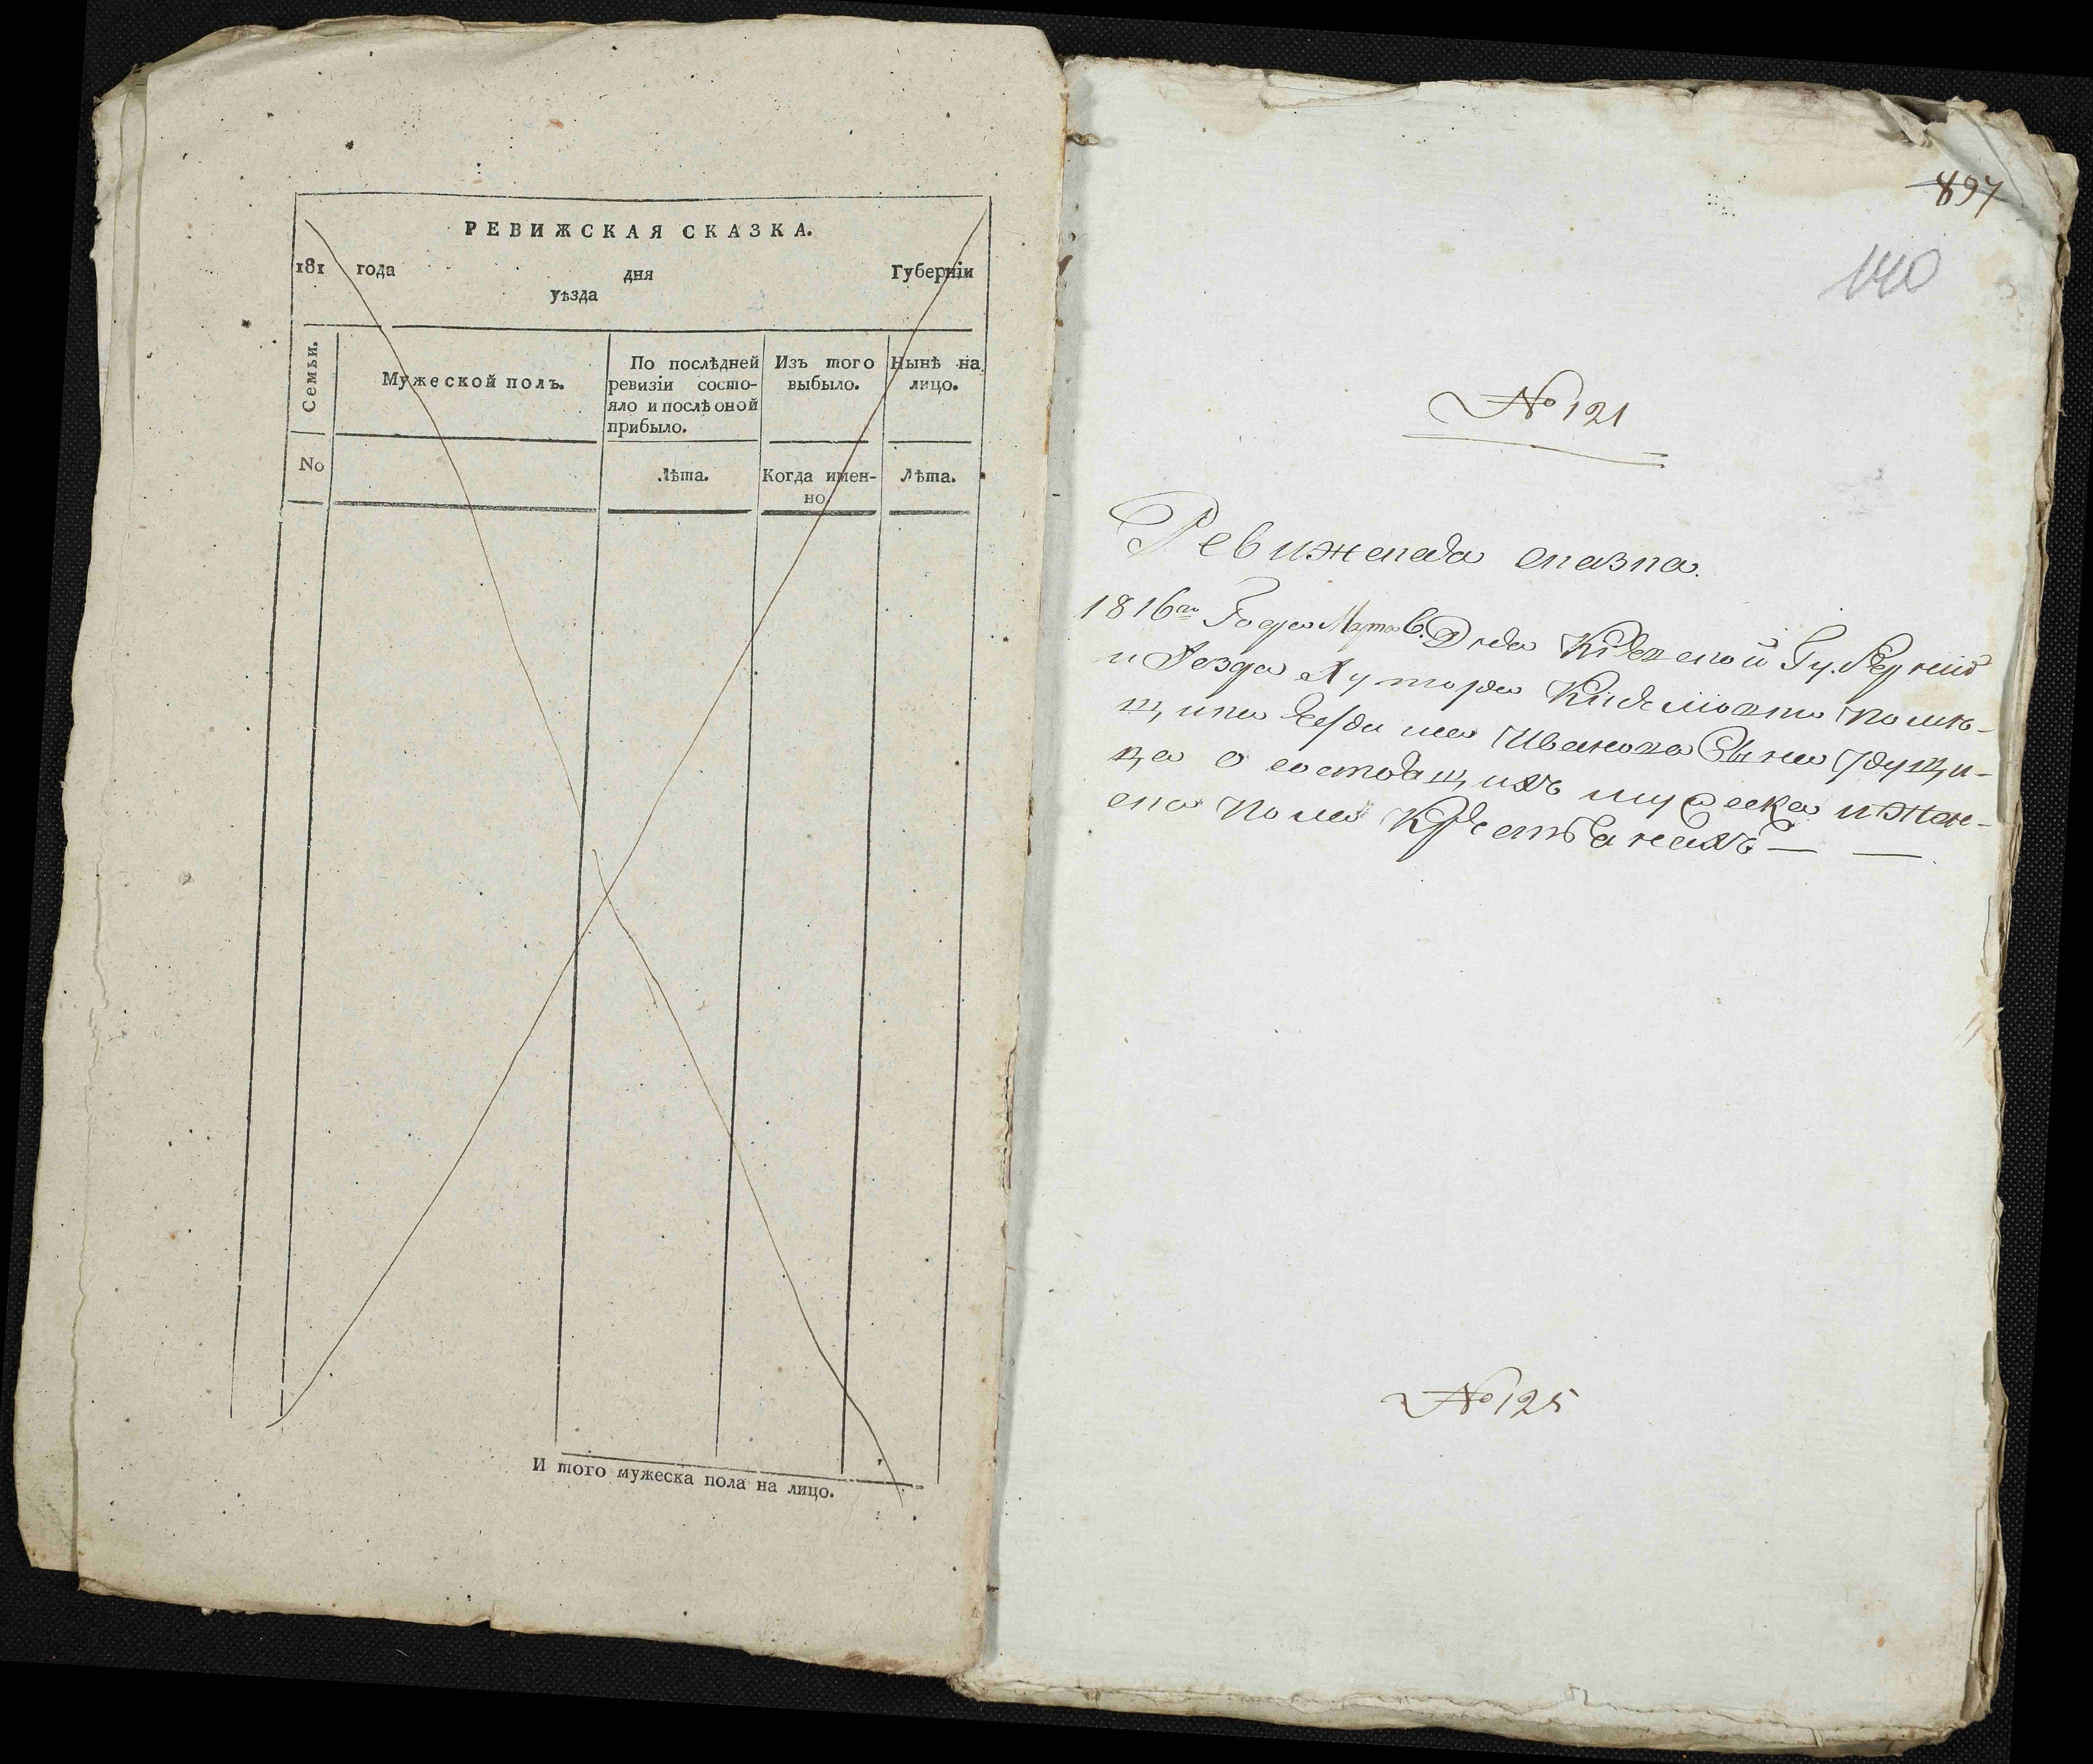 РЕВИЖСКАЯ СКАЗКА.
181 года дня Губерніи
уѣзда
Семьи.
Мужеской полъ.
По послѣдней ревизіи состо-
яло и послѣ оной
прибыло.
Изъ того
выбыло.
Нынѣ на
лицо.
No
Лѣта.
Когда имен-
но.
Лѣта.
И того мужеска пола на лицо.
897
140
№ 121
Ревижская сказка.
1816го Года Марта 6. Дня Кіевской Губерніи
и Уезда Хутора помѣ-
щика Иванова Сына
ца о состоящихъ мужеска и жен-
ска пола Крестьянехъ — —
№ 125